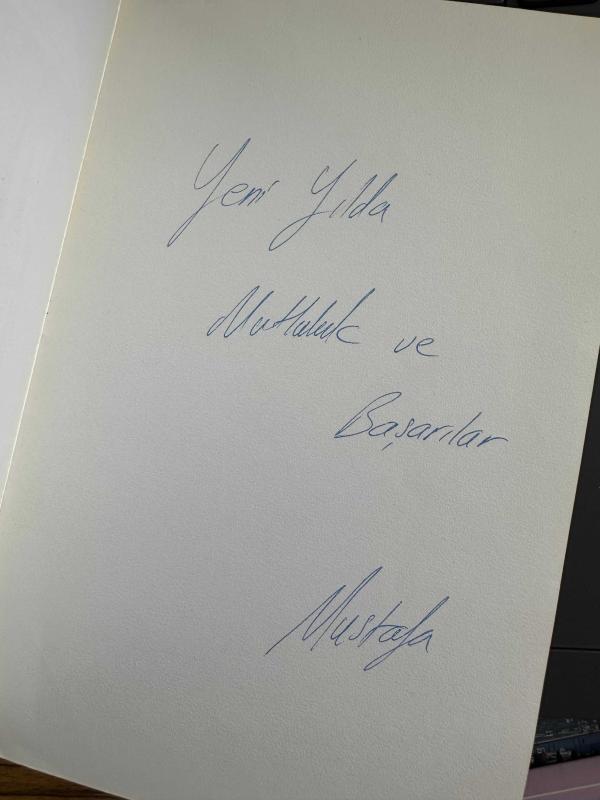 Yeni Yılda
Mutluluk ve
Başarılar
Mustafa